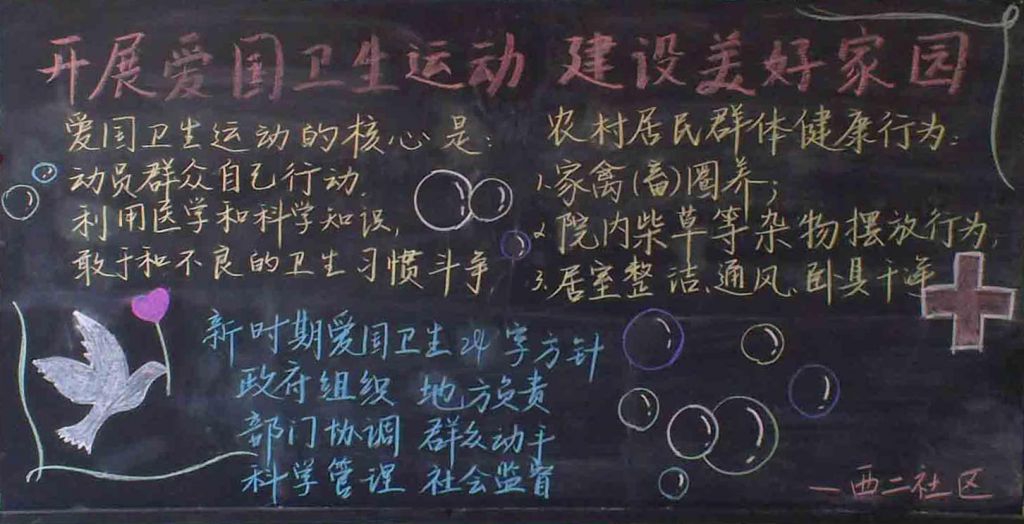 开展爱国卫生运动 建设美好家园
爱国卫生运动的核心是：
动员群众自己行动，
利用医学和科学知识，
敢于和不良的卫生习惯斗争
农村居民群体健康行为：
1.家禽(畜)圈养；
2.院内柴草等杂物摆放行为，
3.居室整洁、通风、卧具干净
新时期爱国卫生24字方针
政府组织 地方负责
部门协调 群众动手
科学管理 社会监督
—西二社区